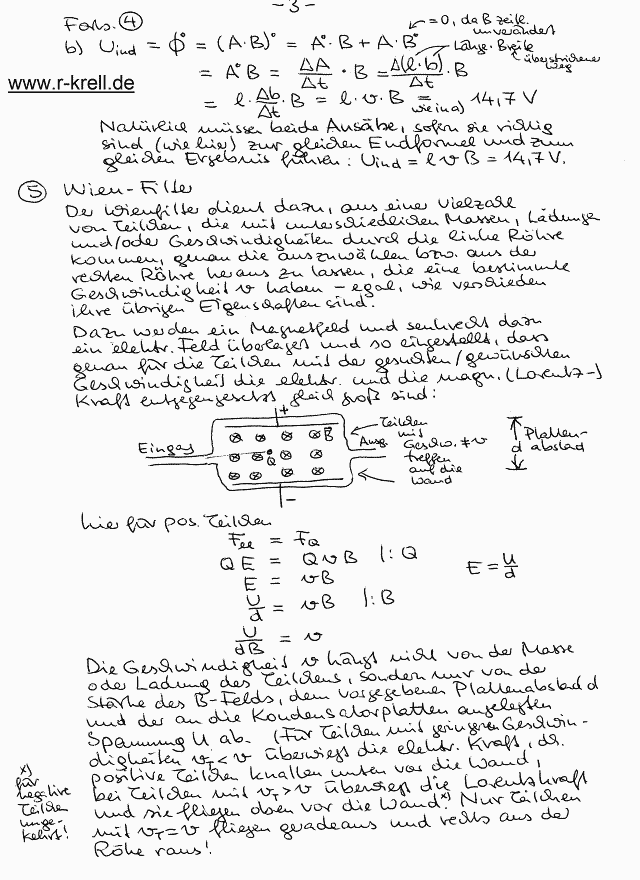 - 3 -
Forts. ④
b) Uind = Φ° = (A·B)° = A°·B + A·B°
= 0, da B zeitl. unverändert
= A°B = ΔA/Δt · B = Δ(l·b)/Δt · B
Länge · Breite
überstrichener Weg
www.r-krell.de
= l · Δb/Δt · B = l · v · B = 14,7 V
wie in a)
Natürlich müssen beide Ansätze, sofern sie richtig
sind (wie hier) zur gleichen Endformel und zum
gleichen Ergebnis führen: Uind = l v B = 14,7 V.
⑤ Wien-Filter
Der Wienfilter dient dazu, aus einer Vielzahl
von Teilchen, die mit unterschiedlichen Massen, Ladungen
und/oder Geschwindigkeiten durch die linke Röhre
kommen, genau die auszuwählen bzw. aus der
rechten Röhre heraus zu lassen, die eine bestimmte
Geschwindigkeit v haben – egal, wie verschieden
ihre übrigen Eigenschaften sind.
Dazu werden ein Magnetfeld und senkrecht dazu
ein elektr. Feld überlagert und so eingestellt, dass
genau für die Teilchen mit der gesuchten/gewünschten
Geschwindigkeit die elektr. und die magn. (Lorentz-)
Kraft entgegengesetzt gleich groß sind:
+
Eingang
B
Q
Ausg.
–
Teilchen
mit
Geschw. ≠ v
treffen
auf die
Wand
d
Platten-
abstand
hier für pos. Teilchen
Fel = FQ
QE = QvB |:Q
E = U/d
E = vB
U/d = vB |:B
U/dB = v
Die Geschwindigkeit v hängt nicht von der Masse
oder Ladung des Teilchens, sondern nur von der
Stärke des B-Felds, dem vorgegebenen Plattenabstand d
und der an die Kondensatorplatten angelegten
Spannung U ab. (Für Teilchen mit geringeren Geschwin-
digkeiten vT < v überwiegt die elektr. Kraft, d.h.
positive Teilchen knallen unten vor die Wand,
bei Teilchen mit vT > v überwiegt die Lorentzkraft
und sie fliegen oben vor die Wand x). Nur Teilchen
mit vT = v fliegen geradeaus und rechts aus der
Röhre raus!
x)
für
negative
Teilchen
umge-
kehrt!